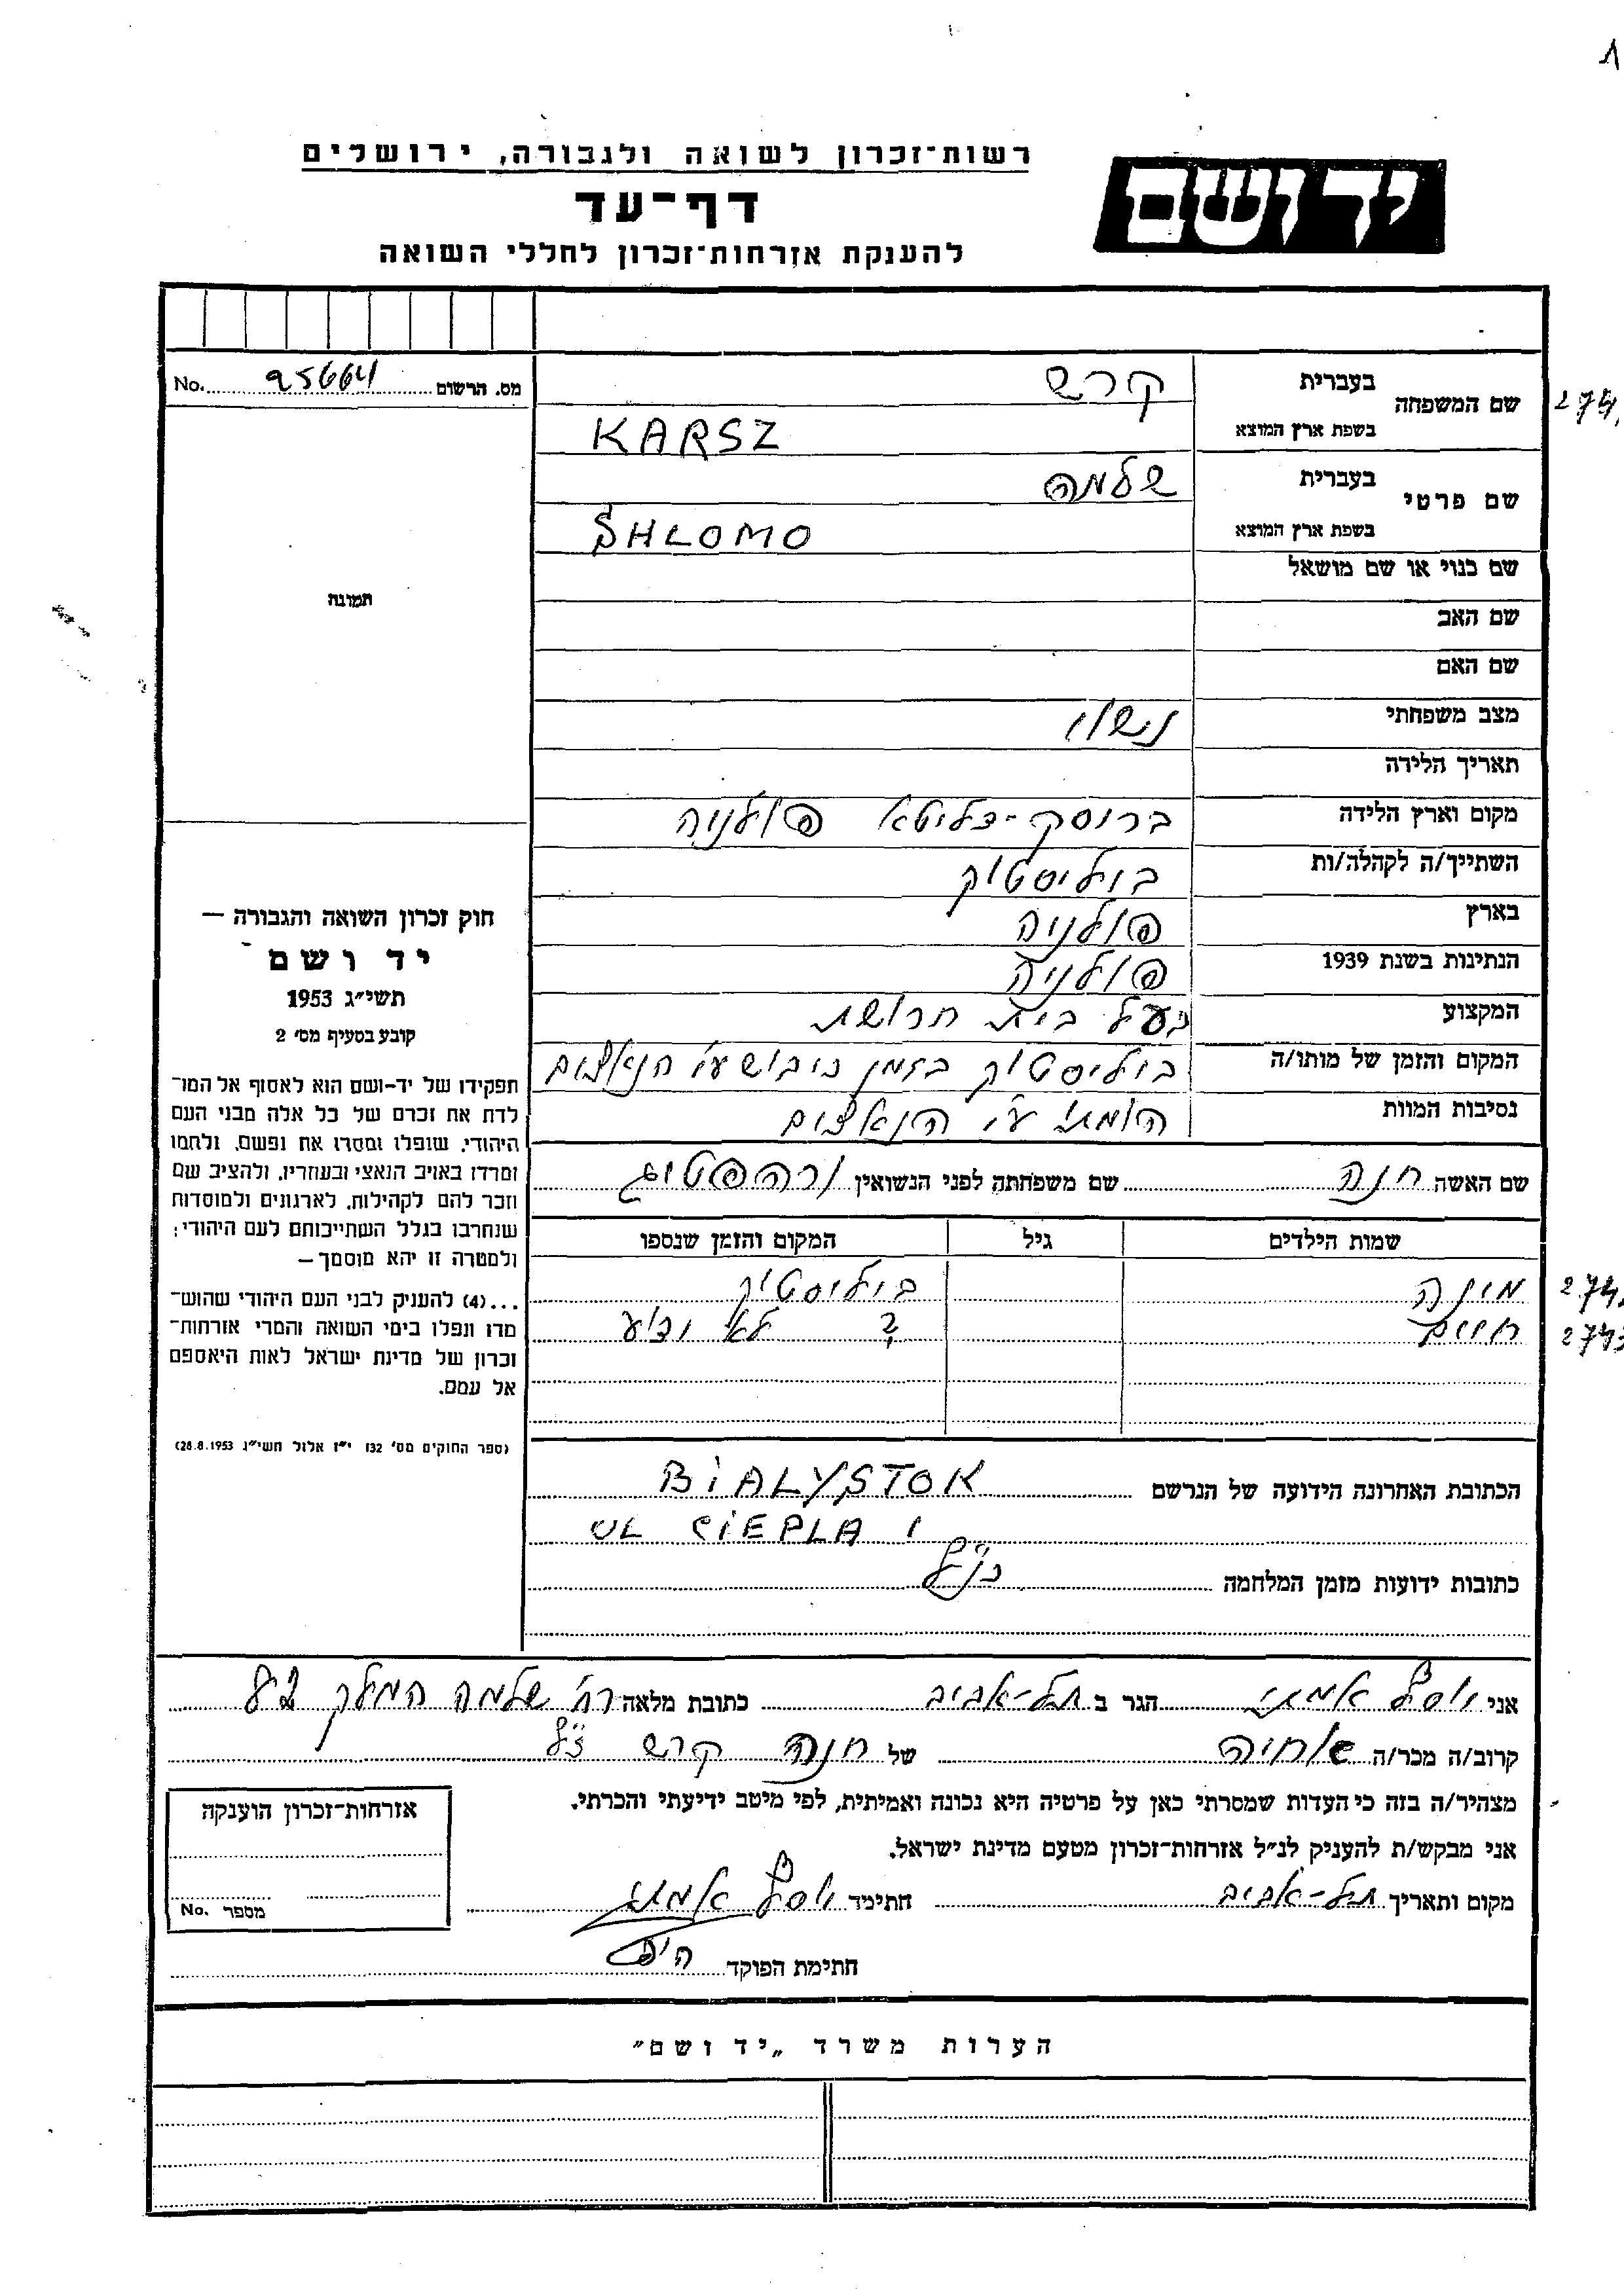 רשות־זכרון לשואה ולגבורה, ירושלים
יד ושם
דף־עד
להענקת אזרחות־זכרון לחללי השואה
מס. הרשום 95664 No.
שם המשפחה
בעברית קרש
בשפת ארץ המוצא KARSZ
שם פרטי
בעברית שלמה
בשפת ארץ המוצא SHLOMO
שם כנוי או שם מושאל
שם האב
שם האם
מצב משפחתי נשוי
תאריך הלידה
מקום וארץ הלידה ברוסק-דליטא פולניה
השתייך/ה לקהלה/ות ביליסטוק
בארץ פולניה
הנתינות בשנת 1939 פולניה
המקצוע בעל בית חרושת
המקום והזמן של מותו/ה ביליסטוק בזמן כיבוש ע"י הנאצים
נסיבות המוות הומת ע"י הנאצים
שם האשה חנה שם משפחתה לפני הנשואין ורהפטיג
שמות הילדים גיל המקום והזמן שנספו
מינה ביליסטוק
חיים ? לא ידוע
הכתובת האחרונה הידועה של הנרשם BIALYSTOK
UL CIEPLA 1
כתובות ידועות מזמן המלחמה כנ"ל
תמונה
חוק זכרון השואה והגבורה —
יד ושם
תשי״ג 1953
קובע בסעיף מס׳ 2
תפקידו של יד-ושם הוא לאסוף אל המו־
לדת את זכרם של כל אלה מבני העם
היהודי, שנפלו ומסרו את נפשם, נלחמו
ומרדו באויב הנאצי ובעוזריו, ולהציב שם
וזכר להם לקהילות, לארגונים ולמוסדות
שנחרבו בגלל השתייכותם לעם היהודי;
ולמטרה זו יהא מוסמך —
...(4) להעניק לבני העם היהודי שהוש־
מדו ונפלו בימי השואה והמרי אזרחות־
זכרון של מדינת ישראל לאות היאספם
אל עמם.
(ספר החוקים מס׳ 132 י״ז אלול תשי״ג 28.8.1953)
אני יוסף אמתי הגר ב תל-אביב כתובת מלאה רח' שלמה המלך
קרוב/ה מכר/ה אחיה של חנה קרש ז"ל
מצהיר/ה בזה כי העדות שמסרתי כאן על פרטיה היא נכונה ואמיתית, לפי מיטב ידיעתי והכרתי.
אני מבקש/ת להעניק לנ״ל אזרחות־זכרון מטעם מדינת ישראל.
מקום ותאריך תל-אביב חתימה יוסף אמתי
חתימת הפוקד
אזרחות־זכרון הוענקה
מספר No.
הערות משרד „יד ושם״